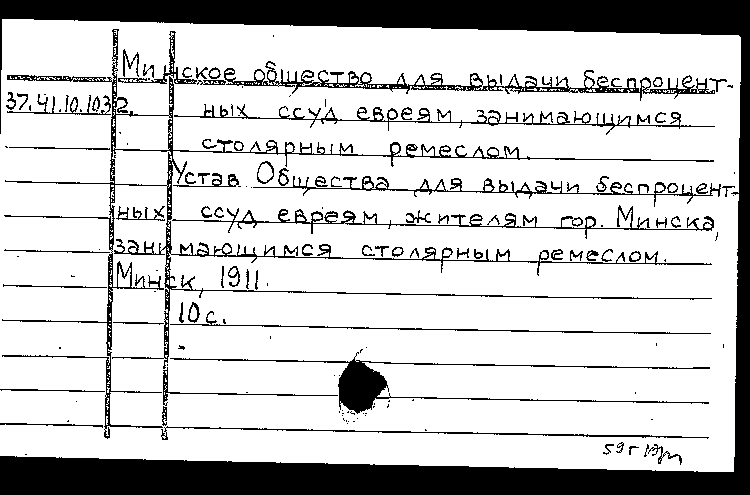 Минское общество для выдачи беспроцент-
37.41.10.1032. ных ссуд евреям, занимающимся
столярным ремеслом.
Устав Общества для выдачи беспроцент-
ных ссуд евреям, жителям гор. Минска,
занимающимся столярным ремеслом.
Минск, 1911.
10 с.
59 г